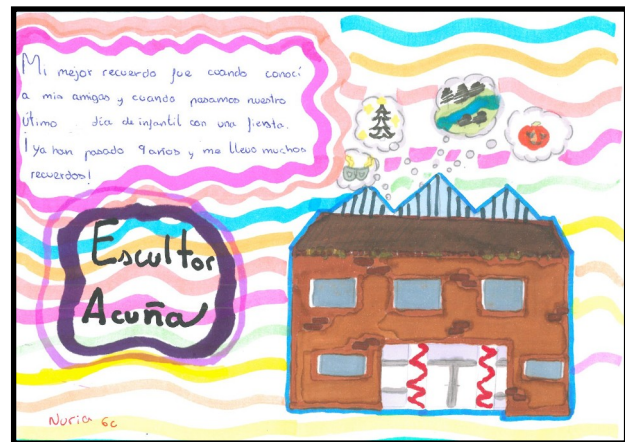 Mi mejor recuerdo fue cuando conocí
a mis amigas y cuando pasamos nuestro
Último día de infantil con una fiesta.
¡Ya han pasado 9 años y me llevo muchos
recuerdos!
Escultor
Acuña
Nuria 6c